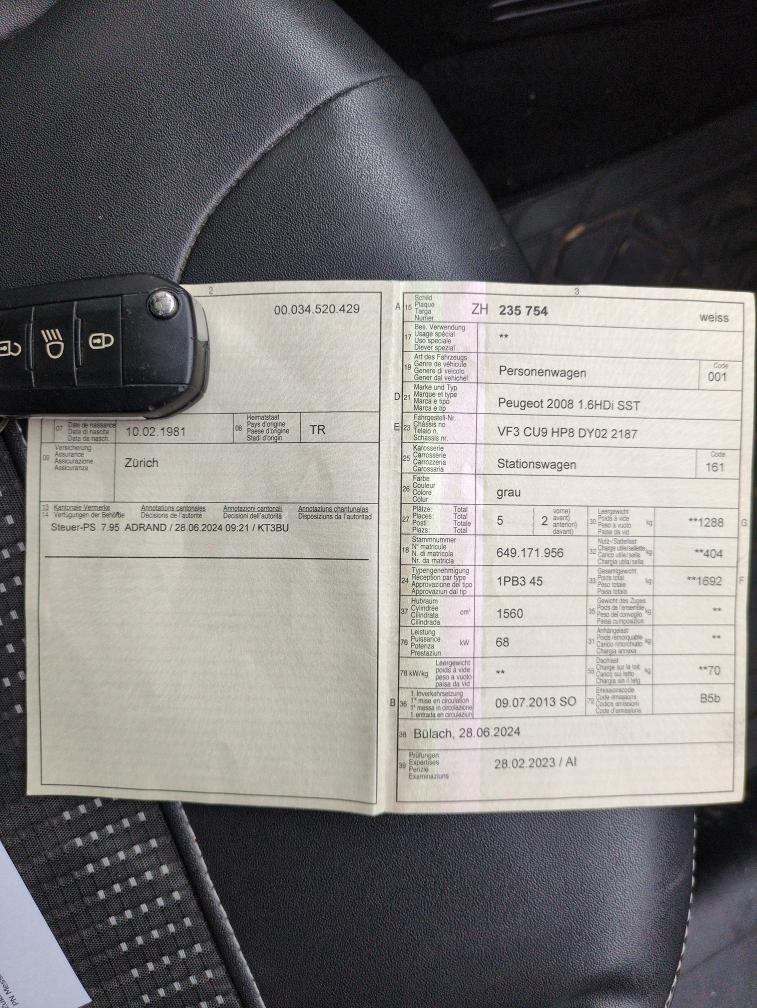 2
00.034.520.429
07 Date de naissance 10.02.1981 08 Heimatstaat TR
Data di nascita Pays d'origine
Data da nasch. Paese d'origine
Stadi d'origin
09 Versicherung Zürich
Assurance
Assicurazione
Assicuranza
13 Kantonale Vermerke Annotations cantonales Annotazioni cantonali Annotaziuns chantunalas
14 Verfügungen der Behörde Décisions de l'autorité Decisioni dell'autorità Disposiziuns da l'autoritad
Steuer-PS 7.95 ADRAND / 28.06.2024 09:21 / KT3BU
3
A 15 Schild ZH 235 754 weiss
Plaque
Targa
Numer
17 Bes. Verwendung **
Usage spécial
Uso speciale
Diever spezial
19 Art des Fahrzeugs Personenwagen Code 001
Genre de véhicule
Genere di veicolo
Gener dal vehichel
D 21 Marke und Typ Peugeot 2008 1.6HDi SST
Marque et type
Marca e tipo
Marca e tip
E 23 Fahrgestell-Nr. VF3 CU9 HP8 DY02 2187
Châssis no
Telaio n.
Schassis nr.
25 Karosserie Stationswagen Code 161
Carrosserie
Carrozzeria
Carossaria
26 Farbe grau
Couleur
Colore
Colur
27 Plätze: Total 5 2 vorne) 30 Leergewicht kg **1288 G
Places: Total avant) Poids à vide
Posti: Totale anteriori) Peso a vuoto
Plazs: Total davant) Paisa da vid
18 Stammnummer 649.171.956 32 Nutz-/Sattellast kg **404
N° matricule Charge utile/sellette
N. di matricola Carico utile/sella
Nr. da matricla Chargia utila/sella
24 Typengenehmigung 1PB3 45 33 Gesamtgewicht kg **1692 F
Réception par type Poids total
Approvazione del tipo Peso totale
Approvaziun dal tip Paisa totala
37 Hubraum cm³ 1560 35 Gewicht des Zuges kg **
Cylindrée Poids de l'ensemble
Cilindrata Peso del convoglio
Cilindrada Paisa cumposiziun
76 Leistung kW 68 31 Anhängelast kg **
Puissance Poids remorquable
Potenza Carico rimorchiato
Prestaziun Chargia annexa
78 kW/kg Leergewicht ** 55 Dachlast kg **70
poids à vide Charge sur le toit
peso a vuoto Carico sul tetto
paisa da vid Chargia sin il tetg
B 36 1. Inverkehrsetzung 09.07.2013 SO 72 Emissionscode B5b
1re mise en circulation Code émissions
1a messa in circolazione Codice emissioni
1. entrada en circulaziun Code d'emissiuns
38 Bülach, 28.06.2024
39 Prüfungen 28.02.2023 / AI
Expertises
Perizie
Examinaziuns